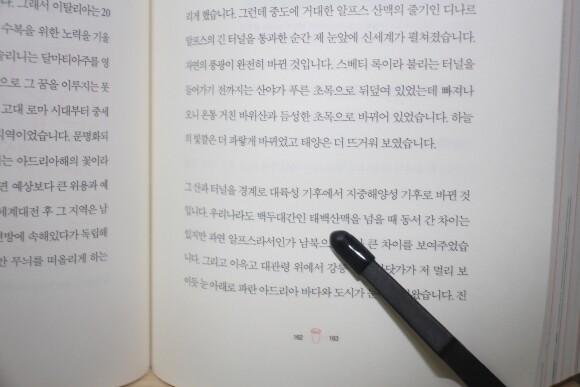 다. 그래서 이탈리아는 20
수복을 위한 노력을 기울
솔리니는 달마티아주를 영
으로 그 꿈을 이루지는 못
고대 로마 시대부터 중세
지역이었습니다. 문명화되
는 아드리아해의 꽃이라
면 예상보다 큰 위용과 예
세계대전 후 그 지역은 남
연방에 속해있다가 독립해
한 무늬를 떠올리게 하는
리게 했습니다. 그런데 중도에 거대한 알프스 산맥의 줄기인 디나르
알프스의 긴 터널을 통과한 순간 제 눈앞에 신세계가 펼쳐졌습니다.
자연의 풍광이 완전히 바뀐 것입니다. 스베티 록이라 불리는 터널을
들어가기 전까지는 산야가 푸른 초목으로 뒤덮여 있었는데 빠져나
오니 온통 거친 바위산과 듬성한 초목으로 바뀌어 있었습니다. 하늘
의 빛깔은 더 파랗게 바뀌었고 태양은 더 뜨거워 보였습니다.
그 산과 터널을 경계로 대륙성 기후에서 지중해양성 기후로 바뀐 것
입니다. 우리나라도 백두대간인 태백산맥을 넘을 때 동서 간 차이는
있지만 과연 알프스라서인가 남북으 큰 차이를 보여주었습
니다. 그리고 이윽고 대관령 위에서 강릉 바닷가가 저 멀리 보
이듯 눈 아래로 파란 아드리아 바다와 도시가 왔습니다. 진
162 163